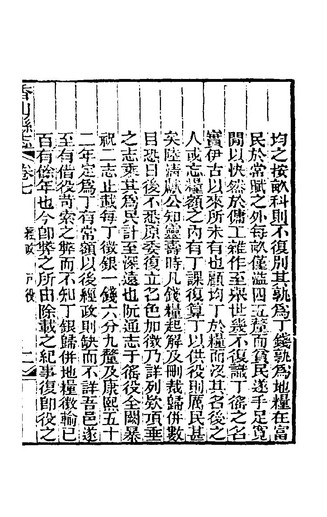 均之按畝科則不復別其孰為丁錢孰為地糧在富
民於常賦之外每畝僅溢四五釐而貧民遂手足寬
閒以快然於傭工雜作至舉世幾不復識丁徭之名
實伊古以來所未有也顧均丁於糧而沒其名後之
人或忘糧額之內有丁課復算丁以供役則厲民甚
矣陸清獻公知靈壽時凡錢糧起解及刪裁歸併數
目恐日後不悉原委復立名色加徵乃詳列欵項垂
之志乘其為民計至深遠也阮通志于徭役全闕暴
祝二志止載每丁徵銀一錢六分九釐及康熙五十
二年定為丁有常額以後經政則缺而不詳吾邑遂
至有借役苛索之弊而不知丁銀歸併地糧徵輸已
百有餘年也今卽弊之所由除載之紀事復卽役之
香山縣志
卷七
經政
戶役
二